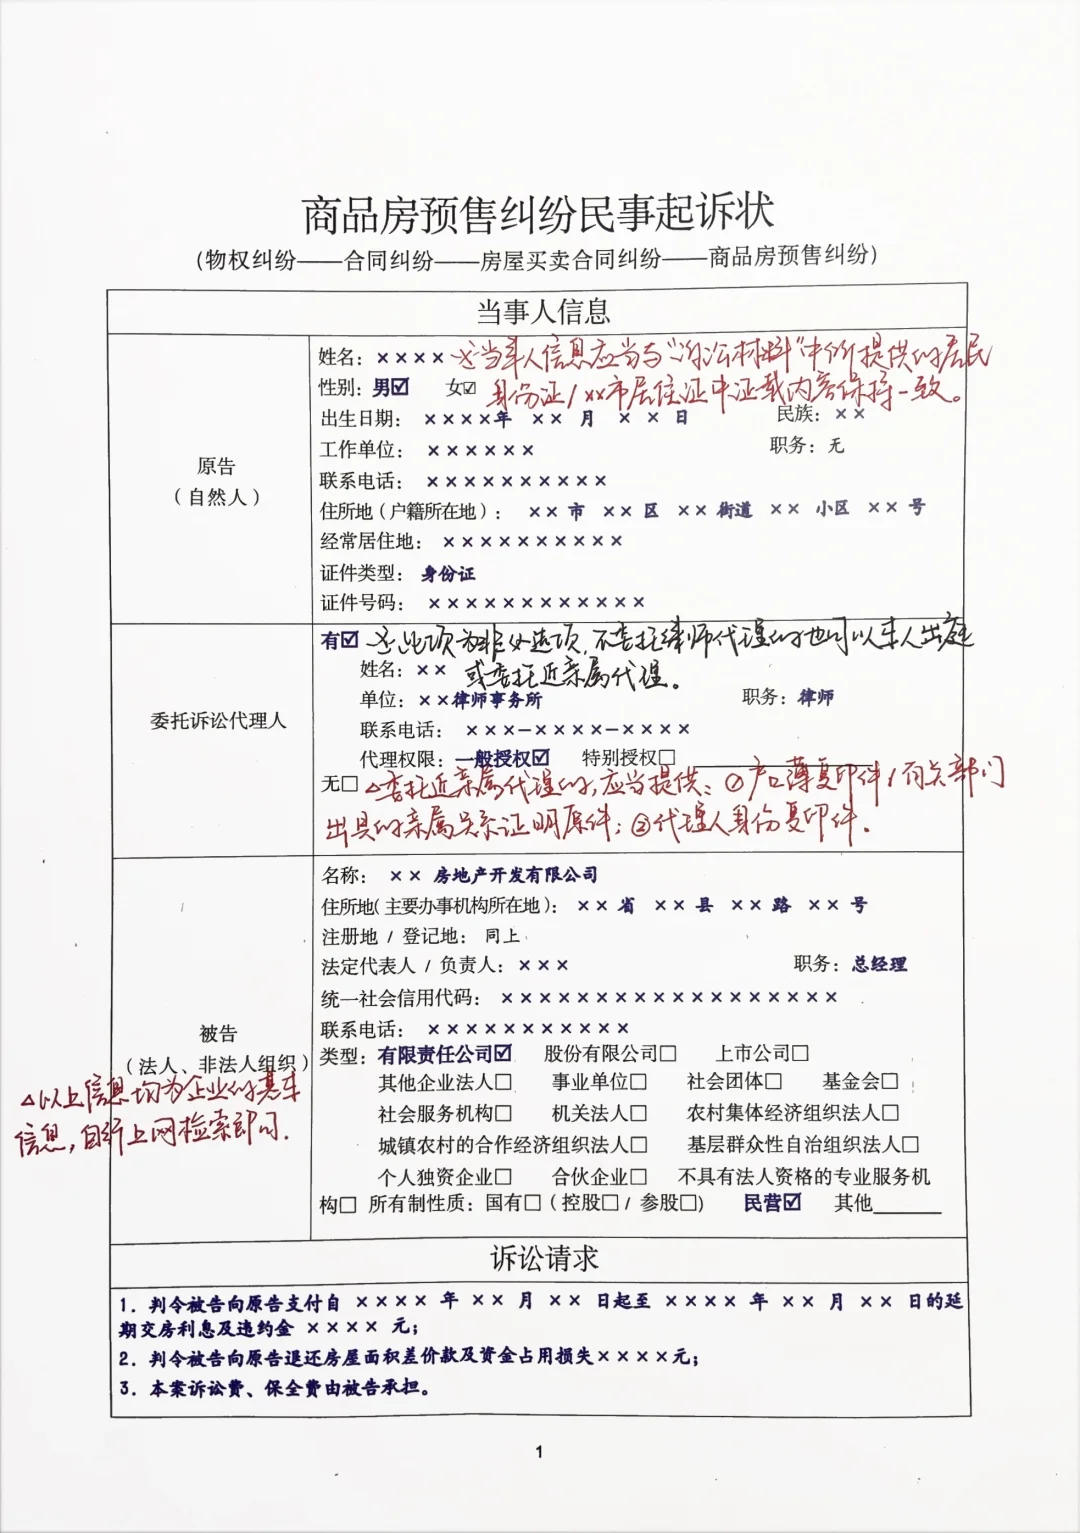 商品房预售纠纷民事起诉状
(物权纠纷——合同纠纷——房屋买卖合同纠纷——商品房预售纠纷)
当事人信息
原告
(自然人)
姓名：××××
当事人信息应当与"诉讼材料"中所提供的居民
性别：男☑ 女☑
身份证/××市居住证中证载内容保持一致。
出生日期：××××年 ×× 月 ×× 日 民族：××
工作单位：×××××× 职务：无
联系电话：××××××××××
住所地(户籍所在地)：××市 ××区 ××街道 ××小区 ××号
经常居住地：××××××××××
证件类型：身份证
证件号码：××××××××××××
委托诉讼代理人
有☑ 此项为非必选项，不委托律师代理的也可以本人出庭
或委托近亲属代理。
姓名：××
单位：××律师事务所 职务：律师
联系电话：×××—××××—××××
代理权限：一般授权☑ 特别授权☐
无☐ △委托近亲属代理的，应当提供：①户口薄复印件/有关部门
出具的亲属关系证明原件；②代理人身份复印件.
被告
(法人、非法人组织)
△以上信息均为企业的基本
信息，自行上网检索即可.
名称：××房地产开发有限公司
住所地(主要办事机构所在地)：××省 ××县 ××路 ××号
注册地 / 登记地：同上
法定代表人 / 负责人：××× 职务：总经理
统一社会信用代码：××××××××××××××××××
联系电话：×××××××××××
类型：有限责任公司☑ 股份有限公司☐ 上市公司☐
其他企业法人☐ 事业单位☐ 社会团体☐ 基金会☐
社会服务机构☐ 机关法人☐ 农村集体经济组织法人☐
城镇农村的合作经济组织法人☐ 基层群众性自治组织法人☐
个人独资企业☐ 合伙企业☐ 不具有法人资格的专业服务机
构☐ 所有制性质：国有☐(控股☐/ 参股☐) 民营☑ 其他______
诉讼请求
1. 判令被告向原告支付自 ×××× 年 ×× 月 ×× 日起至 ×××× 年 ×× 月 ×× 日的延
期交房利息及违约金 ×××× 元；
2. 判令被告向原告退还房屋面积差价款及资金占用损失××××元；
3. 本案诉讼费、保全费由被告承担。
1